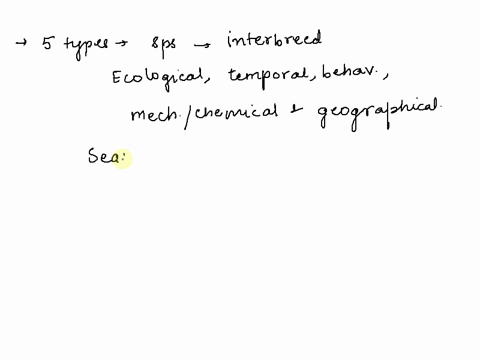 → 5 types → sps → interbreed
Ecological, temporal, behav.,
mech./chemical & geographical.
Sea: